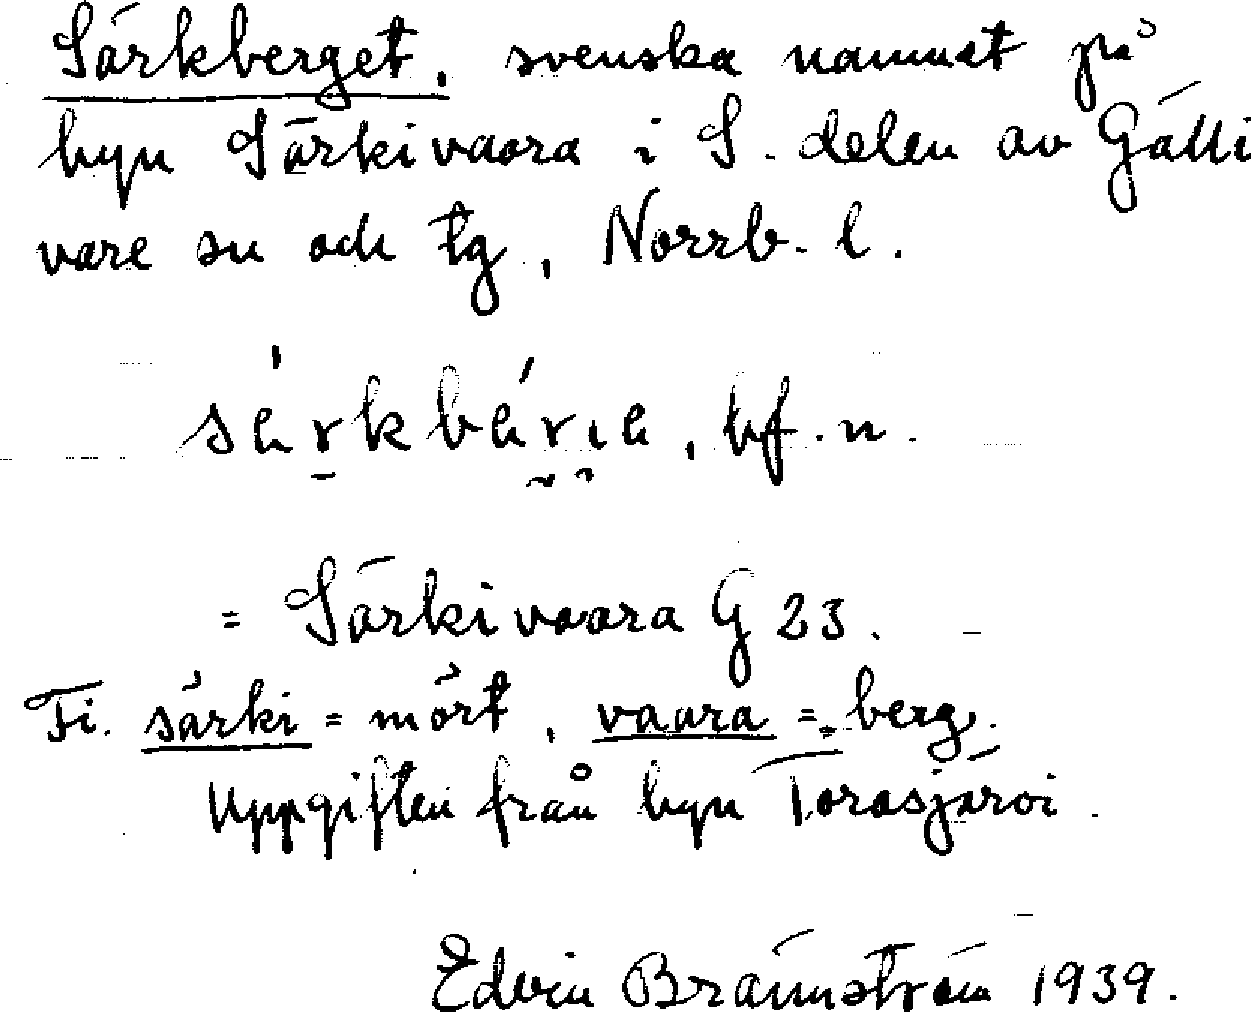 Särkberget, svenska namnet på
byn Särkivaara i S. delen av Gälli
vare sn och tg, Norrb. l.
bf. n.
= Särkivaara G 23.
Fi. särki = mört, vaara = berg.
Uppgiften från byn Torasjärvi.
Edvin Brännström 1939.